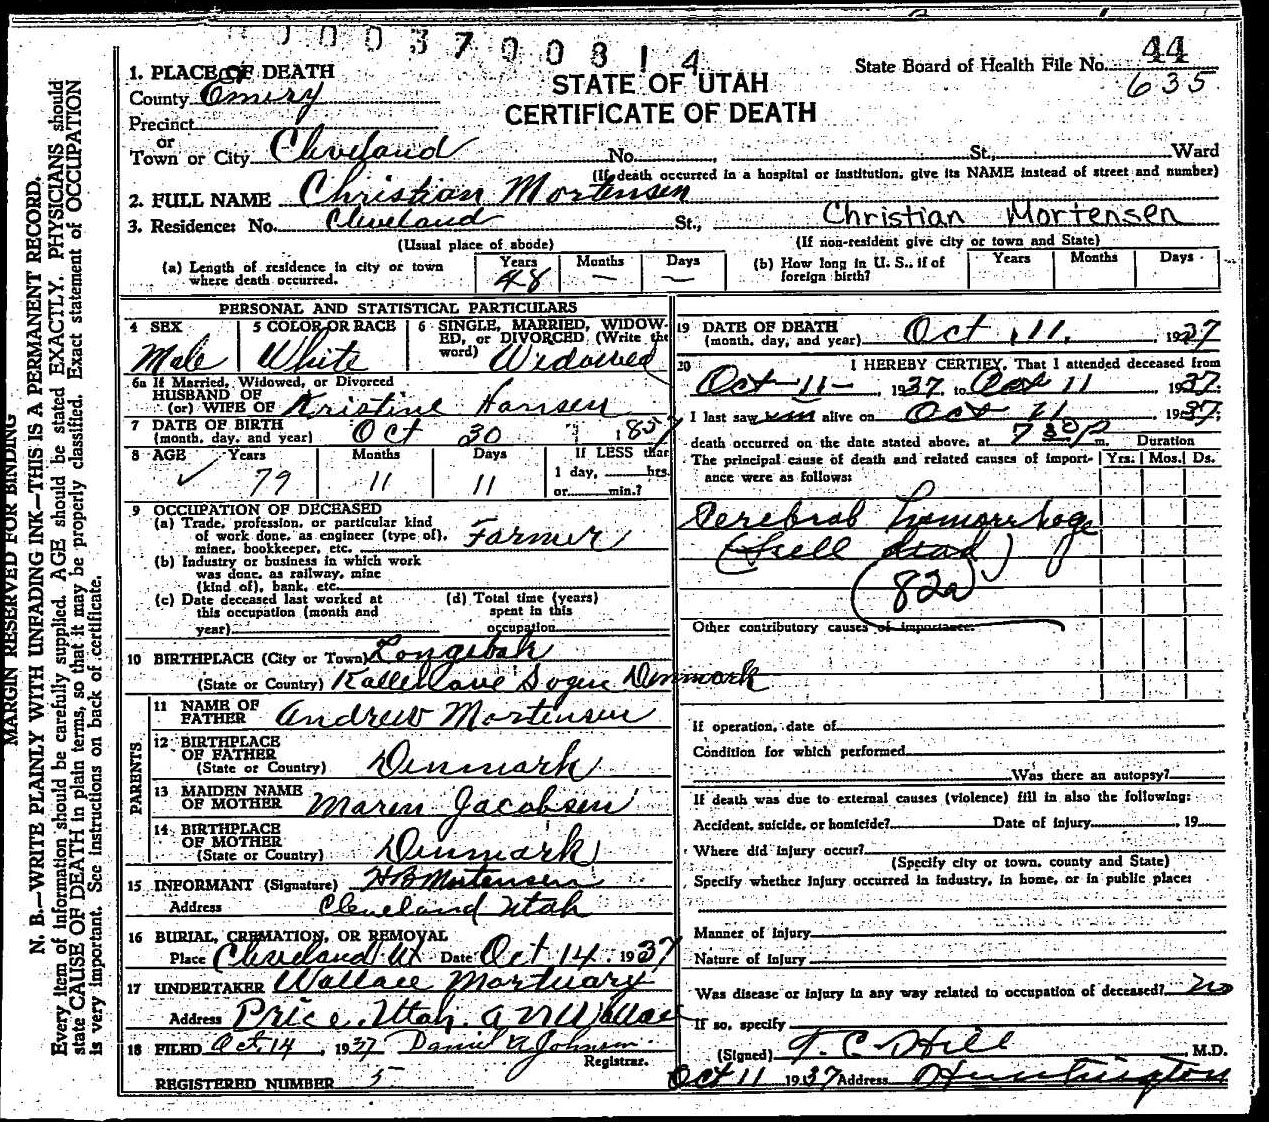 0003700814
44
State Board of Health File No.
635
STATE OF UTAH
CERTIFICATE OF DEATH
1. PLACE OF DEATH
County Emery
Precinct
or
Town or City Cleveland No. , St., Ward
(If death occurred in a hospital or institution, give its NAME instead of street and number)
2. FULL NAME Christian Mortensen
3. Residence: No. Cleveland St., Christian Mortensen
(Usual place of abode) (If non-resident give city or town and State)
(a) Length of residence in city or town where death occurred. Years 48 Months — Days —
(b) How long in U. S., if of foreign birth? Years Months Days
MARGIN RESERVED FOR BINDING
N. B.—WRITE PLAINLY WITH UNFADING INK—THIS IS A PERMANENT RECORD.
Every item of information should be carefully supplied. AGE should be stated EXACTLY. PHYSICIANS should
state CAUSE OF DEATH in plain terms, so that it may be properly classified. Exact statement of OCCUPATION
is very important. See instructions on back of certificate.
PERSONAL AND STATISTICAL PARTICULARS
4 SEX Male
5 COLOR OR RACE White
6 SINGLE, MARRIED, WIDOWED, OR DIVORCED (Write the word) Widowed
6a If Married, Widowed, or Divorced
HUSBAND OF
(or) WIFE OF Kristine Hansen
7 DATE OF BIRTH
(month, day, and year) Oct 30 1857
8 AGE Years Months Days If LESS than
✓ 79 11 11 1 day, hrs.
or min.?
9 OCCUPATION OF DECEASED
(a) Trade, profession, or particular kind
of work done, as engineer (type of), Farmer
miner, bookkeeper, etc.
(b) Industry or business in which work
was done, as railway, mine
(kind of), bank, etc.
(c) Date deceased last worked at
this occupation (month and
year)
(d) Total time (years)
spent in this
occupation
10 BIRTHPLACE (City or Town)
(State or Country) Denmark
PARENTS
11 NAME OF
FATHER Andrew Mortensen
12 BIRTHPLACE
OF FATHER
(State or Country) Denmark
13 MAIDEN NAME
OF MOTHER Maren Jacobsen
14 BIRTHPLACE
OF MOTHER
(State or Country) Denmark
15 INFORMANT (Signature) H B Mortensen
Address Cleveland Utah
16 BURIAL, CREMATION, OR REMOVAL
Place Cleveland Ut Date Oct 14, 1937
17 UNDERTAKER Wallace Mortuary
Address Price, Utah. Wallace
18 FILED Oct. 14, 1937 Daniel A Johnson
Registrar.
REGISTERED NUMBER 5
19 DATE OF DEATH
(month, day, and year) Oct, 11, 1937
20 I HEREBY CERTIFY, That I attended deceased from
Oct-11- 1937, to Oct 11 1937.
I last saw him alive on Oct 11 1937,
death occurred on the date stated above, at 7 30 p m. Duration
The principal cause of death and related causes of importance were as follows: Yrs. Mos. Ds.
Cerebral hemorrhage
(Fell dead)
(82a)
Other contributory causes of importance:
If operation, date of
Condition for which performed
Was there an autopsy?
If death was due to external causes (violence) fill in also the following:
Accident, suicide, or homicide? Date of injury , 19
Where did injury occur?
(Specify city or town, county and State)
Specify whether injury occurred in industry, in home, or in public place:
Manner of Injury
Nature of Injury
Was disease or injury in any way related to occupation of deceased? no
If so, specify
(Signed) T. C. Hill , M.D.
Oct 11 1937 Address Huntington